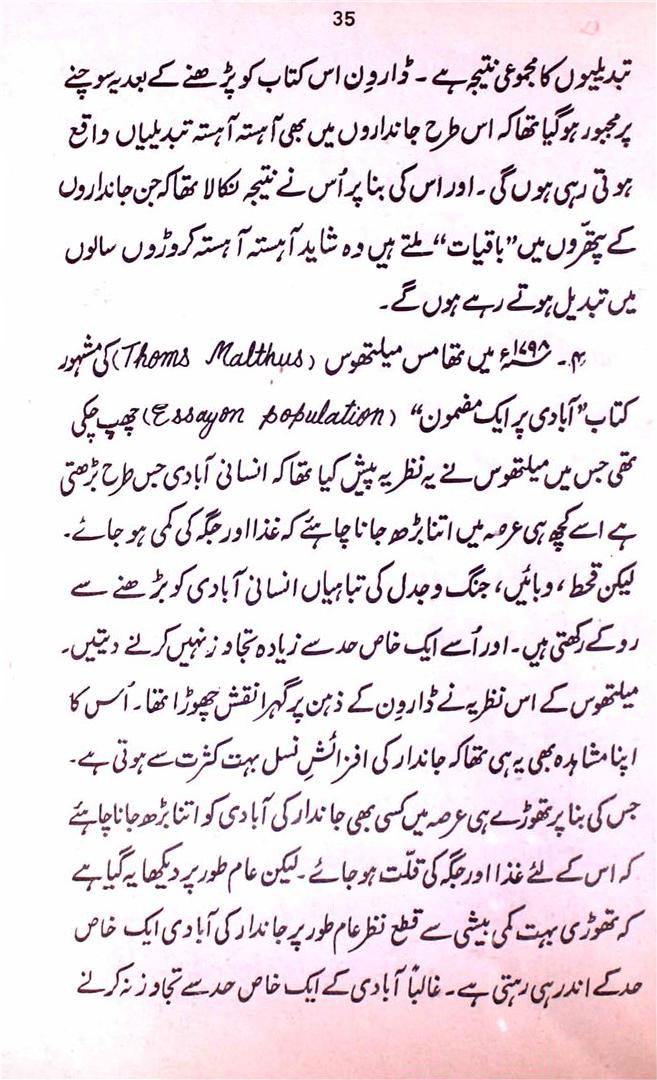 35
تبدیلیوں کا مجموعی نتیجہ ہے ۔ ڈارون اس کتاب کو پڑھنے کے بعد یہ سوچنے
پر مجبور ہو گیا تھا کہ اس طرح جانداروں میں بھی آہستہ آہستہ تبدیلیاں واقع
ہوتی رہی ہوں گی ۔ اور اس کی بنا پر اُس نے نتیجہ نکالا تھا کہ جن جانداروں
کے پتھّروں میں ”باقیات“ ملتے ہیں وہ شاید آہستہ آہستہ کروڑوں سالوں
میں تبدیل ہوتے رہے ہوں گے ۔
۴۔ ۱۷۹۸ء میں تھامس میلتھوس (Thoms Malthus) کی مشہور
کتاب ”آبادی پر ایک مضمون“ (Essayon population) چھپ چکی
تھی جس میں میلتھوس نے یہ نظریہ پیش کیا تھا کہ انسانی آبادی جس طرح بڑھتی
ہے اسے کچھ ہی عرصہ میں اتنا بڑھ جانا چاہئے کہ غذا اور جگہ کی کمی ہو جائے ۔
لیکن قحط ، وبائیں ، جنگ و جدل کی تباہیاں انسانی آبادی کو بڑھنے سے
روکے رکھتی ہیں ۔ اور اُسے ایک خاص حد سے زیادہ تجاوز نہیں کرنے دیتیں ۔
میلتھوس کے اس نظریہ نے ڈارون کے ذہن پر گہرا نقش چھوڑا تھا ۔ اُس کا
اپنا مشاہدہ بھی یہ ہی تھا کہ جاندار کی افزائشِ نسل بہت کثرت سے ہوتی ہے ۔
جس کی بنا پر تھوڑے ہی عرصہ میں کسی بھی جاندار کی آبادی کو اتنا بڑھ جانا چاہئے
کہ اس کے لئے غذا اور جگہ کی قلّت ہو جائے ۔ لیکن عام طور پر دیکھا یہ گیا ہے
کہ تھوڑی بہت کمی بیشی سے قطع نظر عام طور پر جاندار کی آبادی ایک خاص
حد کے اندر ہی رہتی ہے ۔ غالباً آبادی کے ایک خاص حد سے تجاوز نہ کرنے